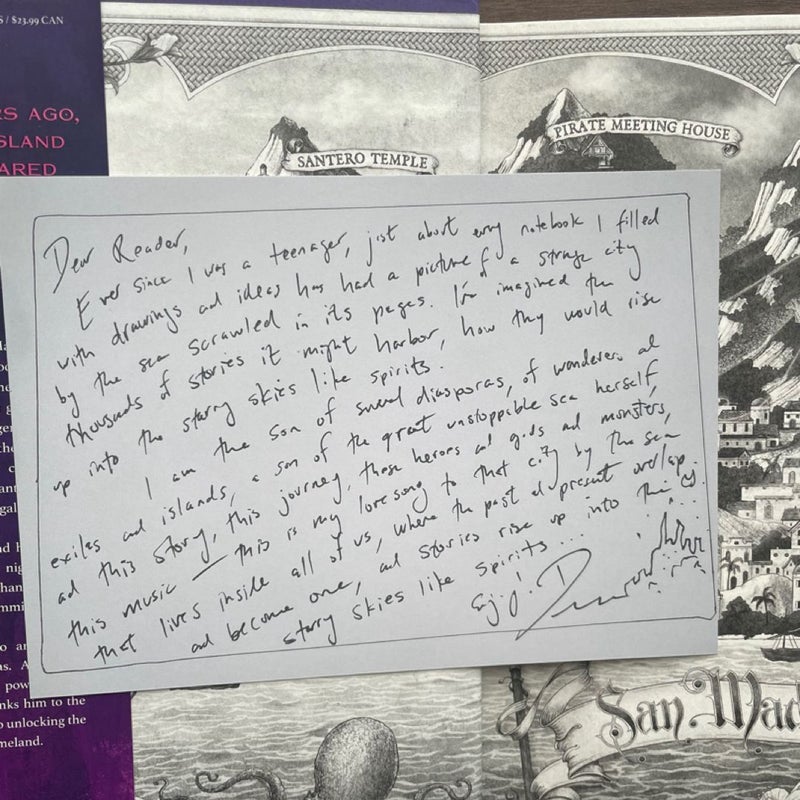 S / $23.99 CAN
RS AGO,
SLAND
ARED
SANTERO TEMPLE
PIRATE MEETING HOUSE
Dear Reader,
Ever since I was a teenager, just about every notebook I filled
with drawings and ideas has had a picture of a strange city
by the sea scrawled in its pages. I've imagined the
thousands of stories it might harbor, how they would rise
up into the starry skies like spirits.
I am the son of several diasporas, of wanderers and
exiles and islands, a son of the great unstoppable sea herself,
and this story, this journey, these heroes and gods and monsters,
this music — this is my love song to that city by the sea
that lives inside all of us, where the past and present overlap
and become one, and stories rise up into the
starry skies like spirits...
San Mad
nks him to the
o unlocking the
meland.